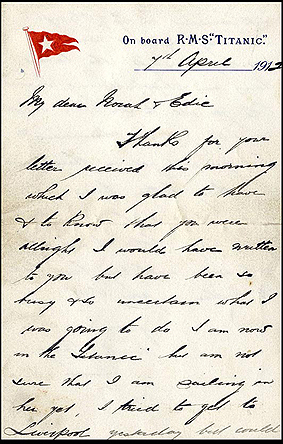 On board R·M·S·"TITANIC."
7th April 1912
My dear Norah & Edie
Thanks for your
letter received this morning
which I was glad to have
& to know that you were
allright I would have written
to you but have been so
busy & so uncertain what I
was going to do I am now
in the Titanic but am not
sure that I am sailing in
her yet, I tried to get to
Liverpool yesterday but could